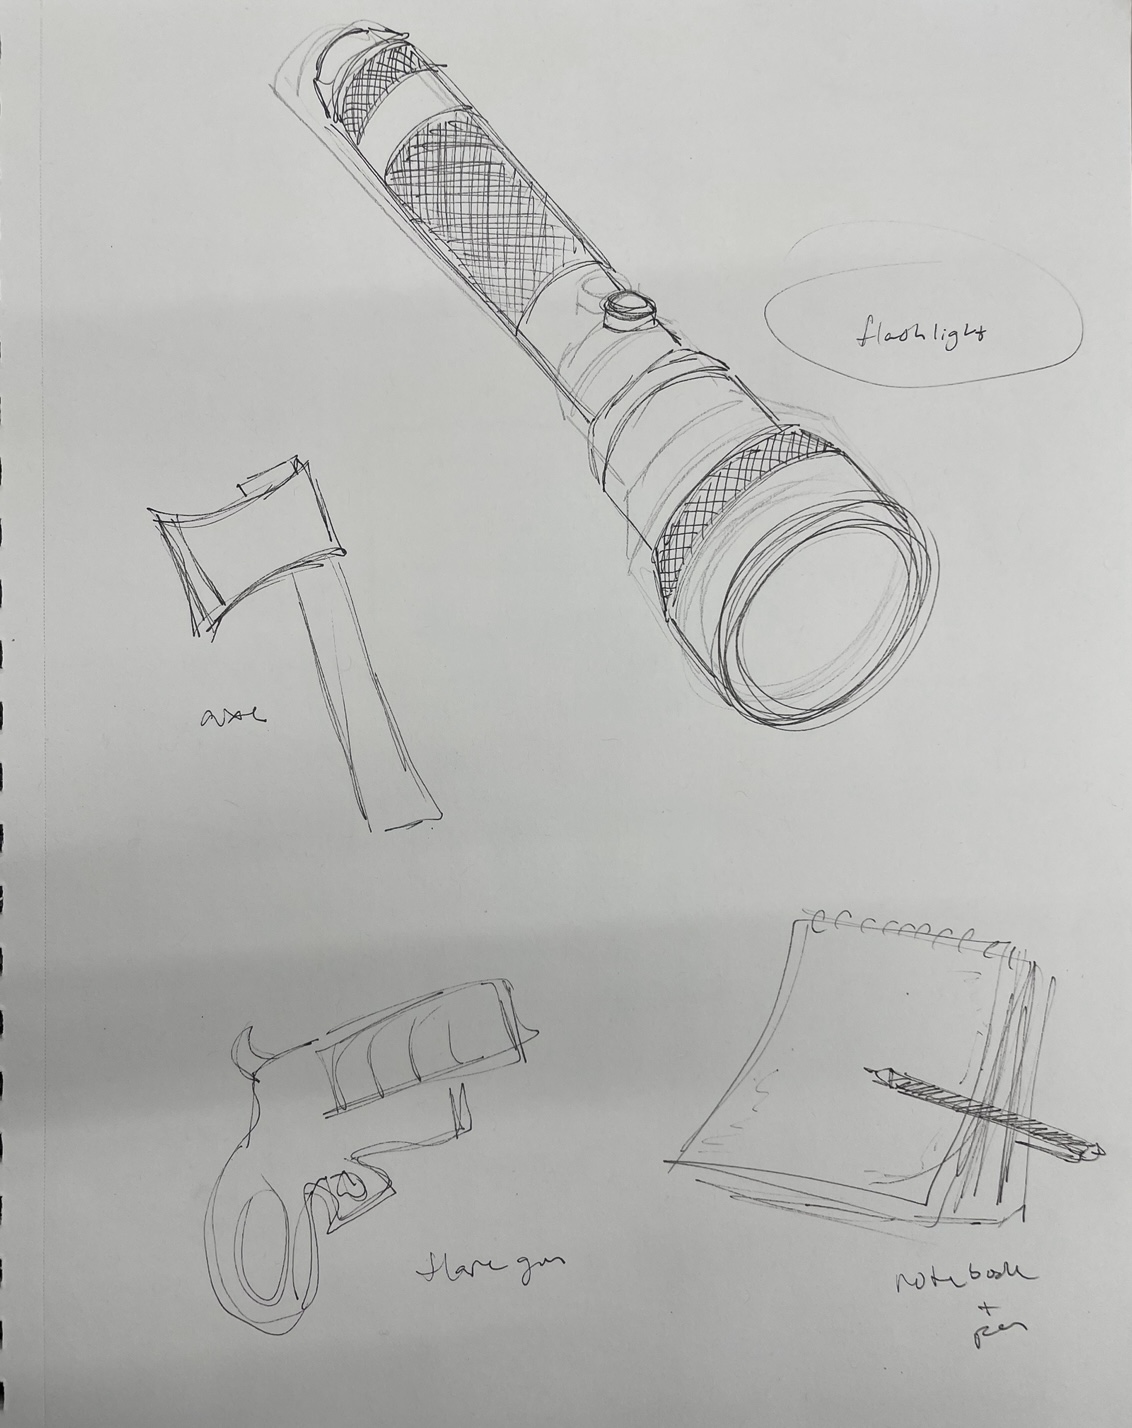 flashlight
axe
flare gun
notebook
+
pen